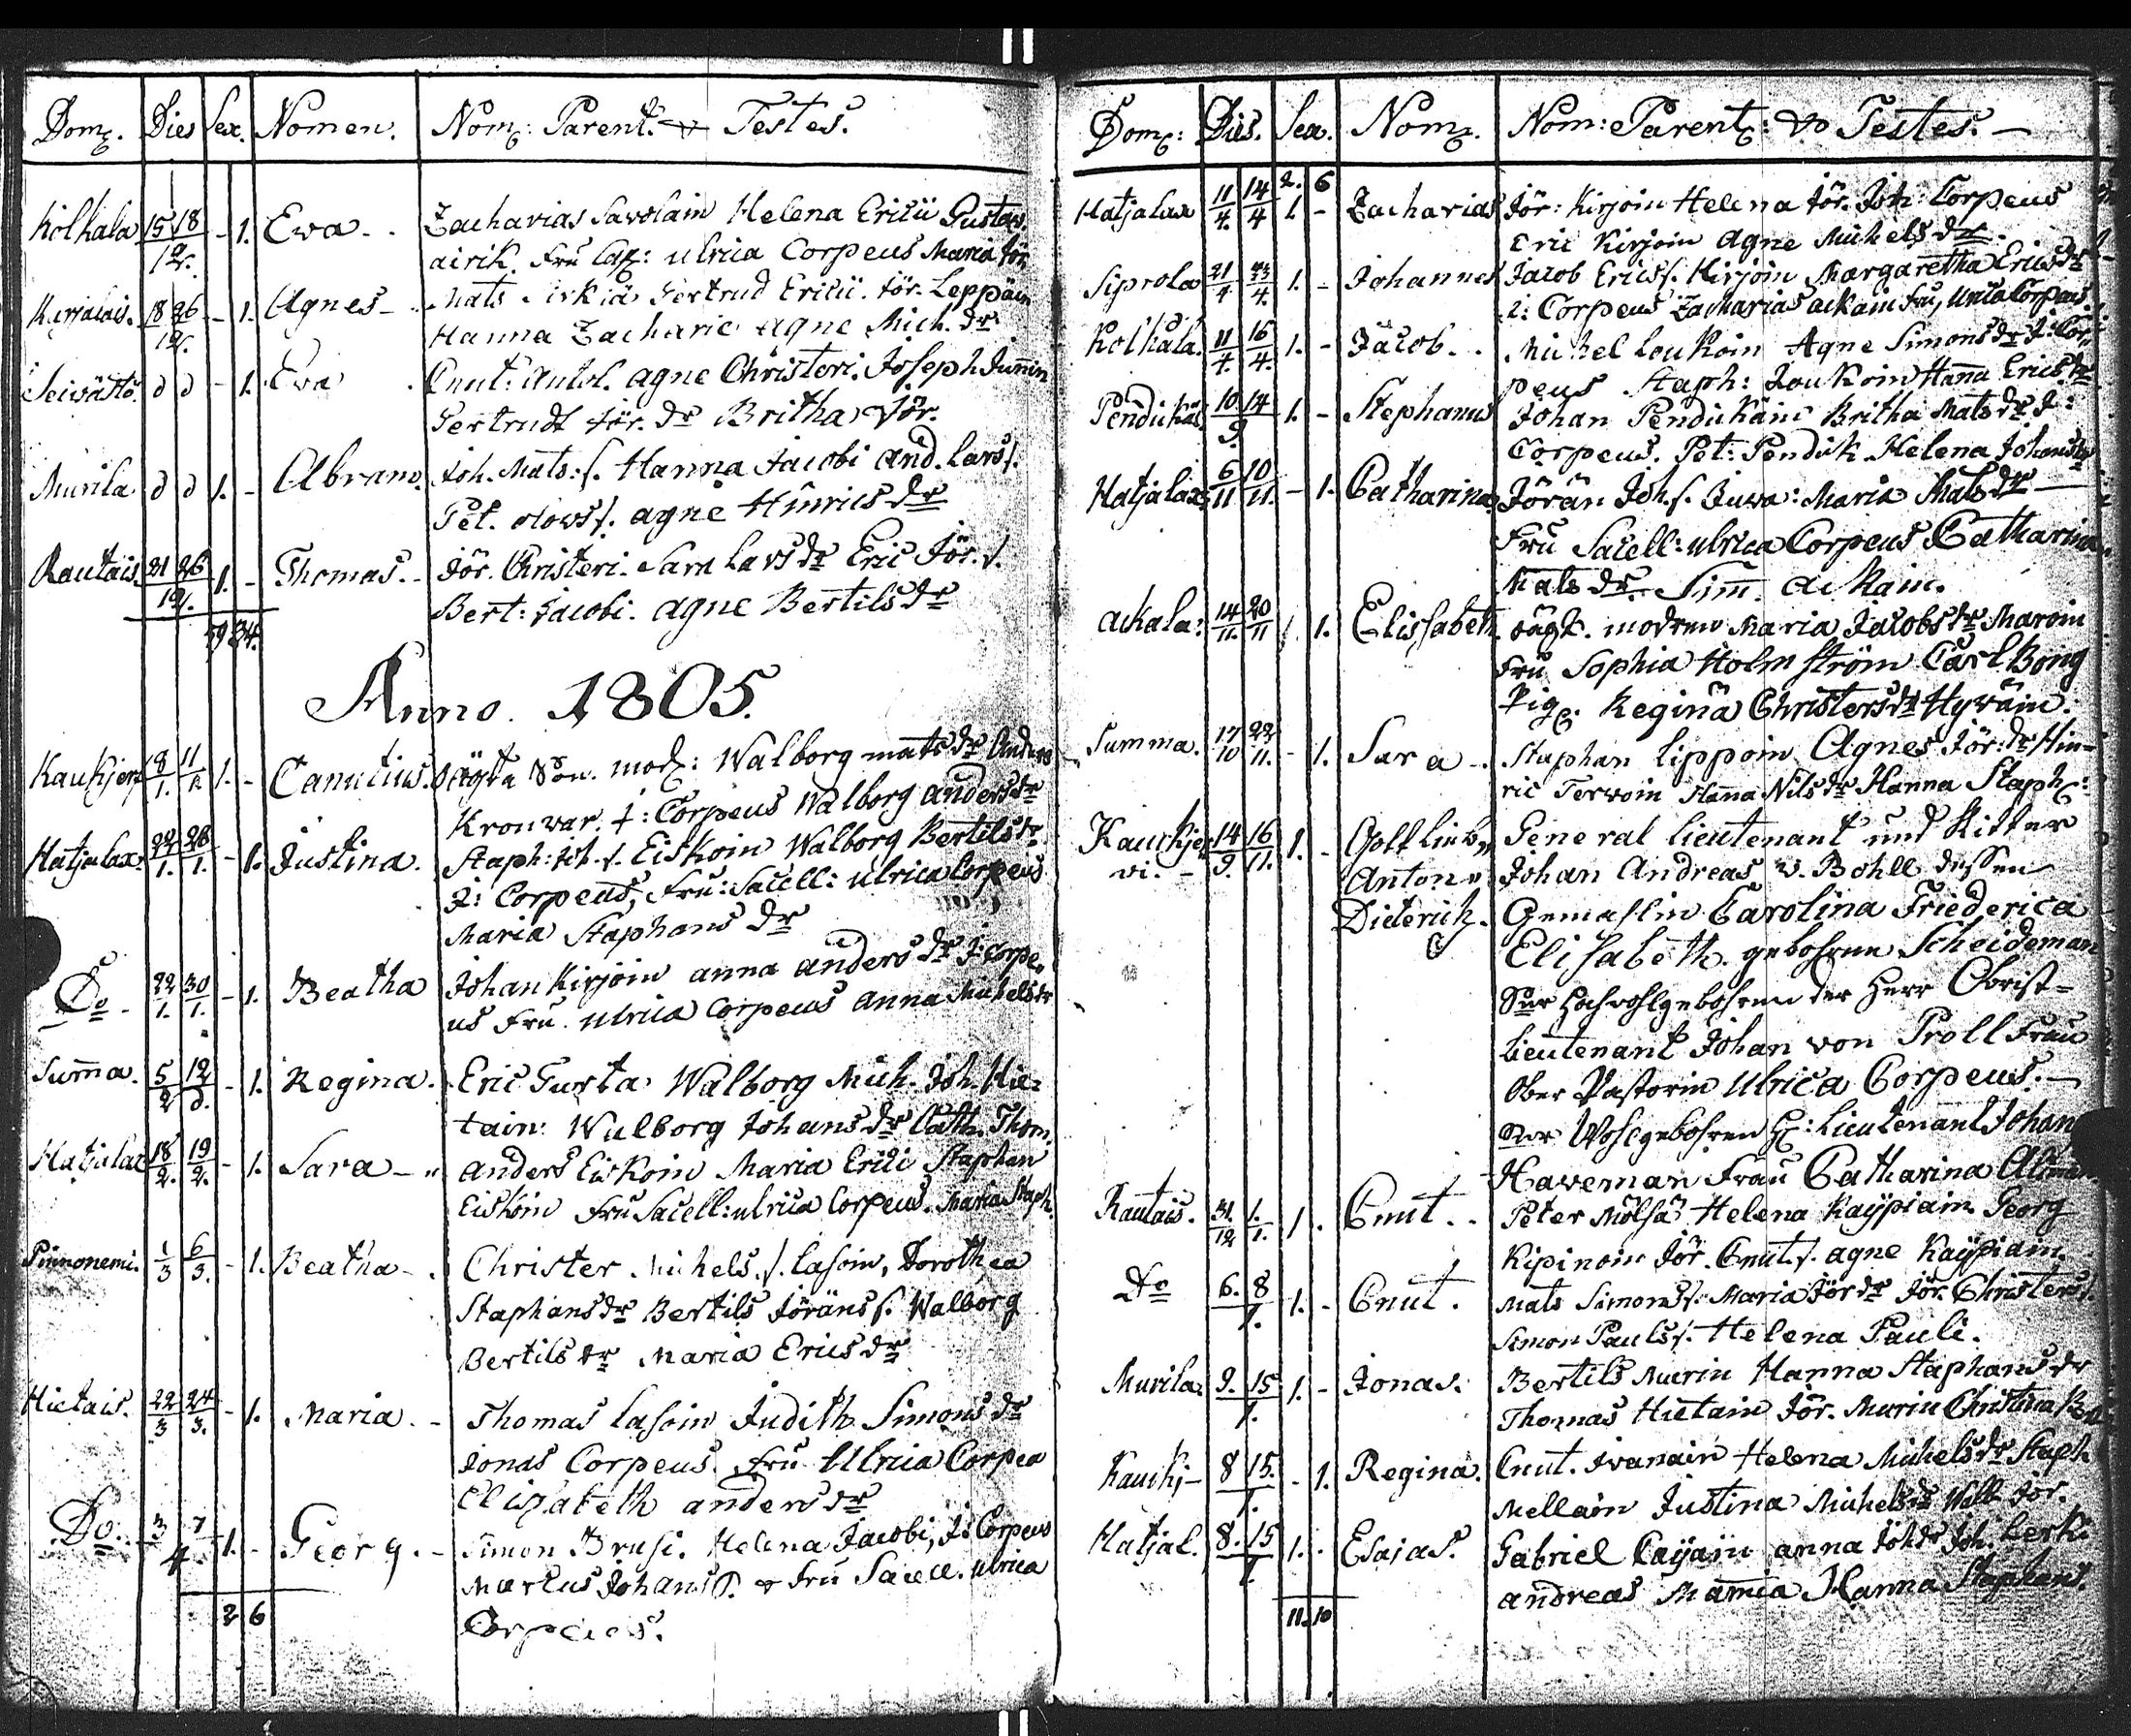 Dom. Dies Sex. Nomen. Nom: Parent. & Testes.
Kolkala 15/12 18/12 - 1. Ewa - . Zacharias Savolain Helena Ericii Gustav.
airik. Fru Cap: Ulrica Corpeus Maria Jör
Kirjalais. 18 26/12. - 1. Agnes - . Mats Gertrud Ericii. Jör. Leppäin
Hanna Zacharie Agne Mich. dr
Seivästö. d d - 1. Eva . Cnut: Antol. Agne Christeri. Joseph Junnin
Gertrudt Jör. dr Britha Jör.
Murila d d 1. - Abram. Joh. Mats: s. Hanna Jacobi And. Lars s.
Pet. Olows s. Agne Hinrics dr
Rautais 21 26/12. 1. - Thomas. - Jör. Christeri. Sara Lars dr Eric Jör. s.
Bert: Jacobi. Agne Bertils dr
34.
Anno. 1805.
Kaukjerf 1. - Canutius. oägta Son. mod: Walborg Mats dr Anders
Kronwar. J: Corpeus Walborg Anders dr
Hatjalax. 22/1. 28/1. - 1. Justina. Staph: Joh. s. Eiskoin Walborg Bertils dr
J: Corpeus, Fru: Sacell: Ulrica Corpeus
Maria Staphans dr
Do - 22/1. 30/1. - 1. Beatha Johan Kirjoin Anna Anders dr J: Corpe„
us Fru. Ulrica Corpeus Anna Michels dr
Summa. 5/2 12/d. - 1. Regina. Eric Turta Walborg Mich. Joh. Hie=
tain: Walborg Johans dr Cath. Thom.
Hatjalax 18/2. 19/2. - 1. Sara - „ Anders Eiskoin Maria Erici Staphan
Eiskoin Fru Sacell: Ulrica Corpeus. Maria Staph.
Pinnonemi. 1/3 6/3. - 1. Beatha - . Christer Michels. s. Lasoin, Dorothea
Staphans dr Bertils Jöräns s. Walborg
Bertils dr Maria Erics dr
Hietais. 22/3 24/3. - 1. Maria. - Thomas Lasoin Judith Simons dr
Jonas Corpeus. Fru Ulrica Corpea
Elizabeth Anders dr
Do. 3 7/4 1. - Georg. - Simon Brusi. Helena Jacobi, J: Corpeus
Marcus Johans s. & Fru Sacell. Ulrica
2 6 Corpeus.
Dom: Dies. Sex. Nom. Nom: Parent: & Testes. -
2. 6
Hatjalax 11/4. 14/4 1. - Zacharias Jör: Kirjoin Helena Jör. Joh: Corpeus
Eric Kirjoin Agne Michels dr.
Siprola 21/4 23/4. 1. - Johannes Jacob Erics s. Kirjoin Margaretha Erics dr
J: Corpeus Zacharias Ackain Fru, Ulrica Corpeus.
Kolkala. 11/4. 16/4. 1. - Jacob. . Michel Loukoin Agne Simons dr J: Cor„
peus Staph: Loukoin Hanna Erics dr
Pendikäi 10. 14/9. 1. - Stephanus Johan Pendikäin Britha Mats dr J:
Corpeus. Pet: Pendik. Helena Johans dr
Hatjalax 6/11 10/11. - 1. Catharina Jörän Joh. s. Juwa: Maria Mats dr -
Fru Sacell: Ulrica Corpeus Catharina
Mats dr. Sim. Ackain.
Ackala: 14/11. 20/11 1. Elisabeth. oägt. modren Maria Jacobs dr Maroin
Fru Sophia Holmström Carl Bong
Pig. Regina Christers dr Hywäin.
Summa. 17/10 22/11. - 1. Sara - . Staphan Lippoin Agnes Jör: dr Hin=
ric Terwoin Hanna Nils dr Hanna Staph:
Kaukjer 14/9. 16/11. 1. - Gottlieb „ General Lieutenant und Ritter
vi. - Anton „ Johan Andreas v. Bohll dessen
Dieterich. Gemahlin Carolina Friederica
Elisabeth. gebohrne Scheideman
Hochwohlgebohren der Herr Obrist=
Lieutenant Johan von Proll Frau
Ober Pastorin Ulrica Corpeus. -
Wohlgebohren H: Lieutenant Johan
Haveman Frau Catharina
Rautais. 31./12 1./1. 1. Cnut. . Peter Mölsä Helena Käÿpiäin Georg
Kipinoin Jör. Cnut. s. Agne Käÿpiäin.
Do 6. 8/1. 1. - Cnut. Mats Simons s. Maria Jör dr Jör. Christers s.
Simon Pauls s. Helena Pauli.
Murila 9. 15/1. 1. - Jonas. Bertils Murin Hanna Staphans dr
Thomas Hietain Jör. Murin Christina
Kaukj - 8 15./1. - 1. Regina. Cnut. Ivanain Helena Michels dr Staph
Mellain Justina Michels dr Walb. Jör.
Hatjal. 8. 15/1 1. . Esaias. Gabriel Caÿain Anna Joh dr Joh. Lerki
Andreas Mamia Hanna Stephans.
11. 10